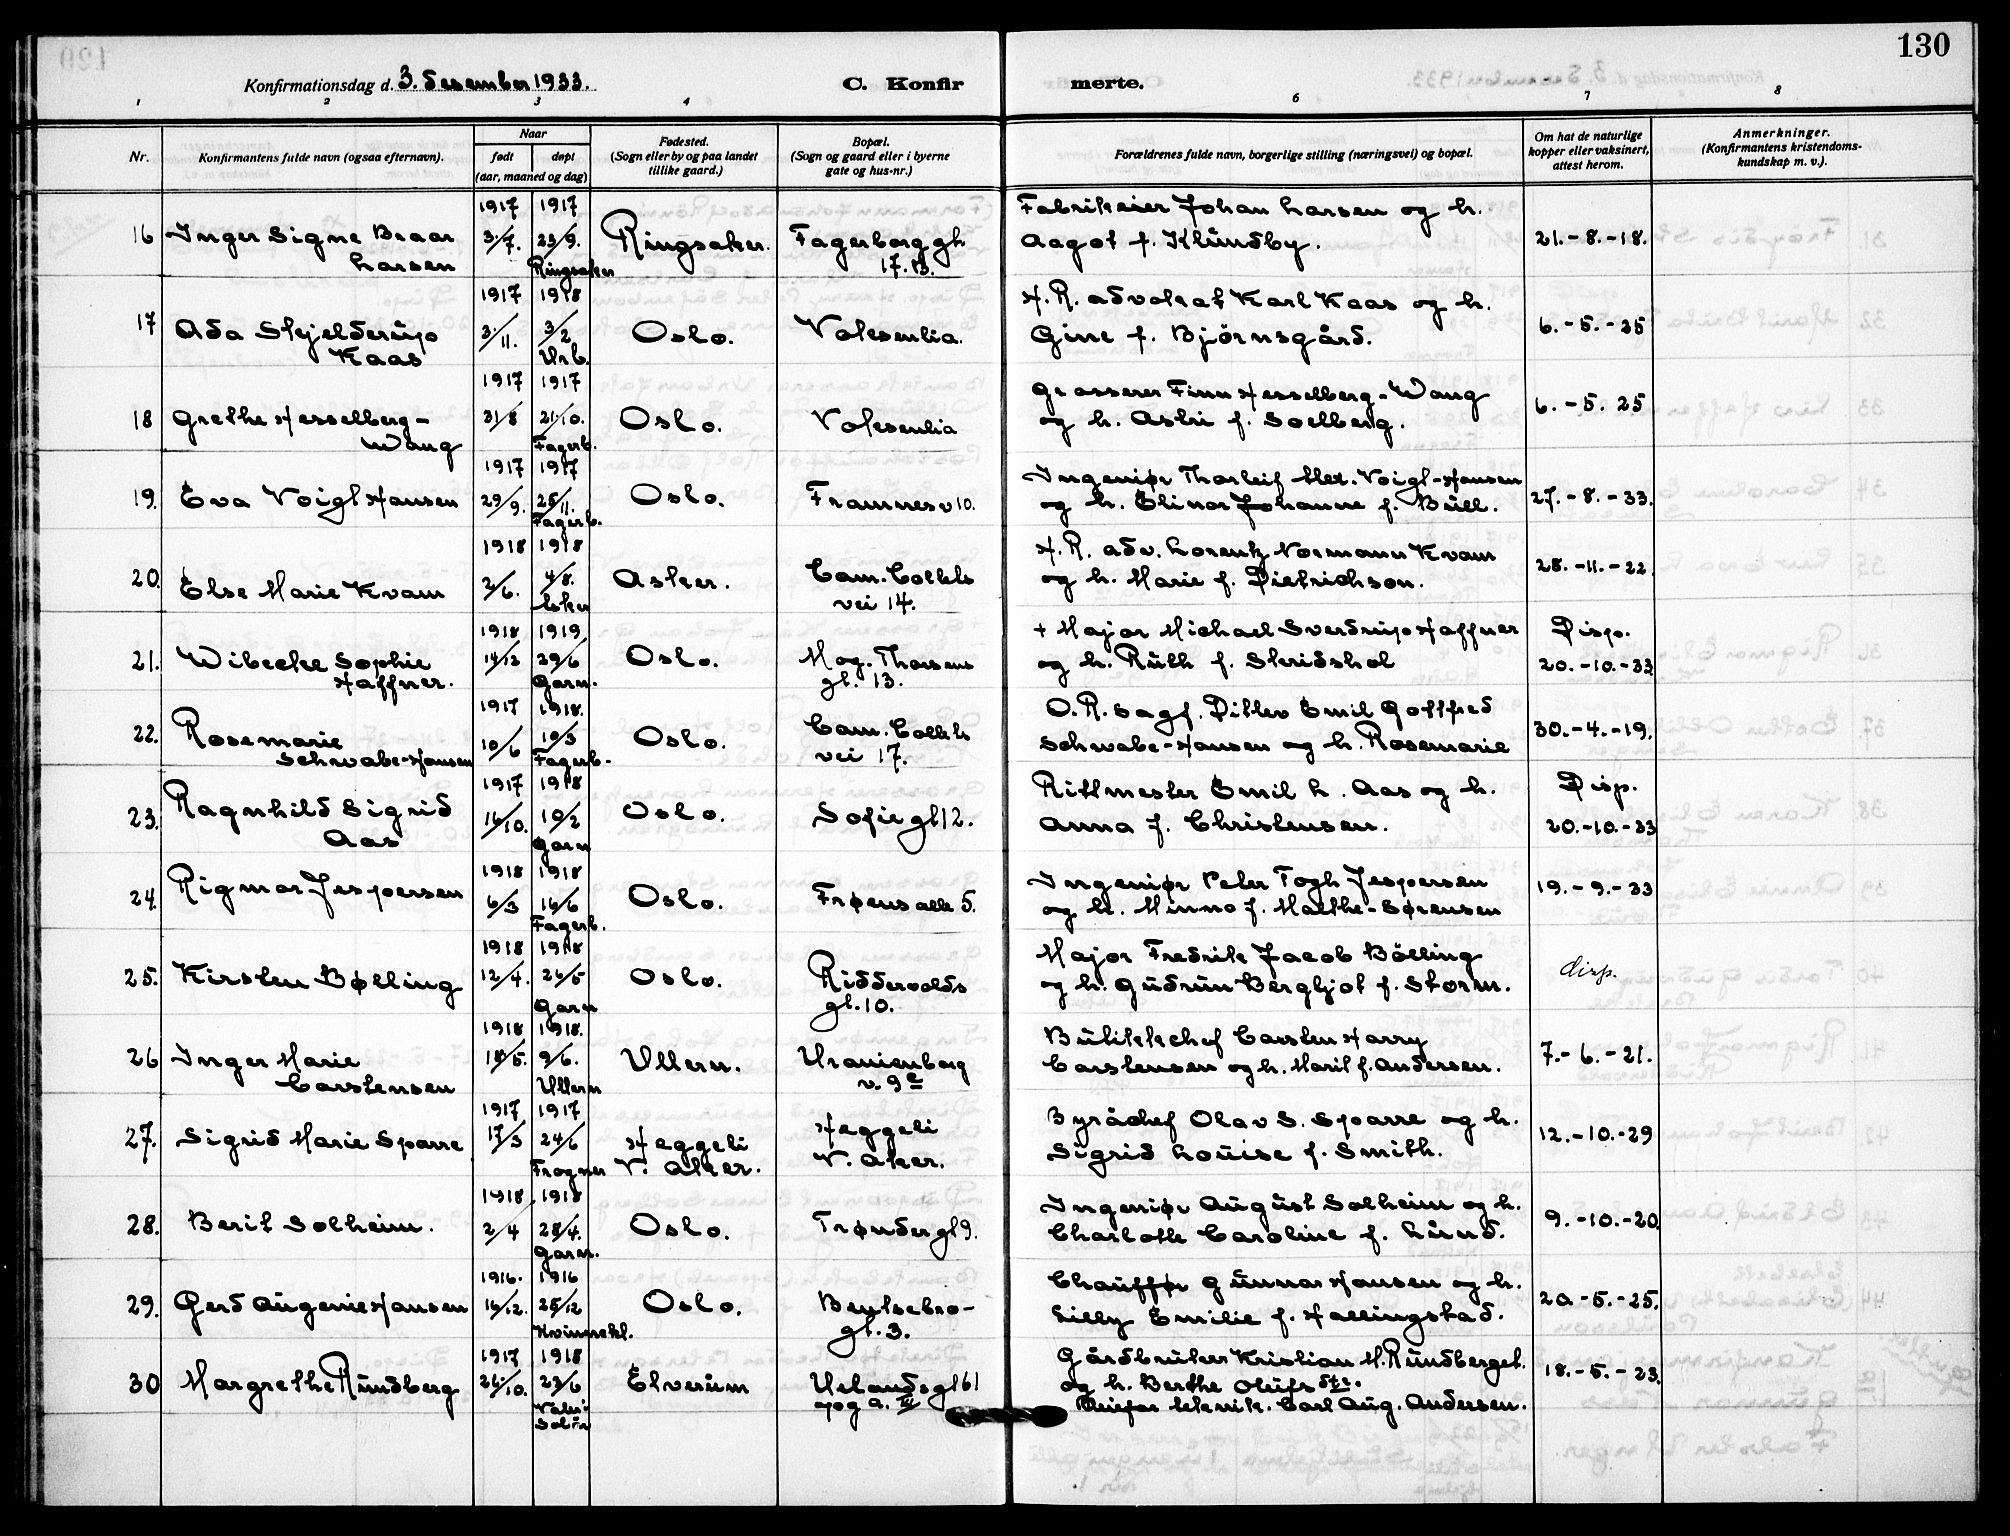 130
Konfirmationsdag d. 3. desember 1933.
C. Konfirmerte.
1 2 3 4 6 7 8
Nr.
Konfirmantens fulde navn (ogsaa efternavn).
Naar
født
døpt
(aar, maaned og dag)
Fødested.
(Sogn eller by og paa landet
tillike gaard.)
Bopæl.
(Sogn og gaard eller i byerne
gate og hus-nr.)
Forældrenes fulde navn, borgerlige stilling (næringsvei) og bopæl.
Om hat de naturlige
kopper eller vaksinert,
attest herom.
Anmerkninger.
(Konfirmantens kristendoms-
kundskap m. v.).
16 Inger Signe Braar
Larsen
1917
3/7.
1917
23/9.
Ringsaker
Ringsaker.
Fagerborggt.
17.B.
Fabrikeier Johan Larsen og h.
Aagot f. Klundby.
21.-8.-18.
17 Ada Skjelderup
Kaas
1917
3/11.
1918
3/2
Urb.
Oslo.
Volvenlia.
H.R. advokat Karl Kaas og h.
Gine f. Bjørnsgård.
6.-5.-25
18 Grethe Hesselberg-
Wang
1917
31/8
1917
21/10.
Fagerb.
Oslo.
Volvenlia
Grosserer Finn Hesselberg-Wang
og h. Astri f. Soelberg.
6.-5. 25
19. Eva Voigt Hansen
1917
29/9.
1917
25/11.
Fagerb.
Oslo.
Framnesv 10.
Ingeniør Thorleif Alex. Voigt-Hansen
og h. Elinor Johanne f. Bull.
27.-8.-33.
20. Else Marie Kvam
1918
2/6.
1918
4/8.
Asker
Asker.
Cam. Colletts
vei 14.
H.R. adv. Lorentz Normann Kvam
og h. Marie f. Dietrichson.
28.-11.-22
21. Wibecke Sophie
Haffner.
1918
14/12
1919
29/6
Garn.
Oslo.
Mog. Thorsens
gt. 13.
+ Major Michael Sverdrup Haffner
og h. Ruth f. Skridshol
Disp.
20.-10.-33
22. Rosemarie
Schwabe-Hansen
1917
10/6
1918.
10/3
Fagerb.
Oslo.
Cam. Colletts
vei 17.
O.R. sagf. Ditlev Emil Gottfred
Schwabe-Hansen og h. Rosemarie
30.-4.-19.
23. Ragnhild Sigrid
Aas
1917
16/10.
1918
10/2
Garn
Oslo.
Sofiegt 12.
Rittmester Emil L. Aas og h.
Anna f. Christensen.
Disp.
20.-10.-33
24. Rigmor Jespersen
1918
6/3
1918
16/6
Fagerb.
Oslo.
Frøens alle 5.
Ingeniør Peter Fogh Jespersen
og h. Minna f. Malthe-Sørensen
19.-9.-33
25. Kirsten Bølling
1918
12/4.
1918
26/5
Garn
Oslo.
Riddervolds
gt. 10.
Major Fredrik Jacob Bölling
og h. Gudrun Bergljot f. Storm.
disp.
26 Inger Marie
Carstensen
1918
18/5.
1918.
9/6.
Ullern
Ullern.
Uranienborg
v. 9
Carsten Harry
Carstensen og h. Marit f. Andersen.
7.-6.-21.
27. Sigrid Marie Sparre
1917
17/3
1917
24/6
Frogner
Heggeli
V. Aker.
Heggeli
V. Aker.
Byråchef Olav S. Sparre og h.
Sigrid Louise f. Smith.
12.-10.-29
28. Berit Solheim.
1918
2/4
1918
28/4.
Garn.
Oslo.
Trøndergt 9.
Ingeniør August Solheim og h.
Charlotte Caroline f. Lund.
9.-10.-20.
29. Gerd Augenie Hansen
1916.
16/12.
1916
25/12
Kvinnekl.
Oslo.
Bentsebro-
gt. 3.
Chauffør Gunnar Hansen og h.
Lilly Emilie f. Hallingstad.
20-5.-25.
30 Margrethe Rundberg
1917
26/10.
1918
23/6
Våler i
Solør
Elverum
Uelandsgt 61
opg a. III
Gårdbruker Kristian M. Rundberget.
og h. Berthe Olufsdtr.
Pleiefar teknik. Carl Aug. Andersen.
18.-5.-23.